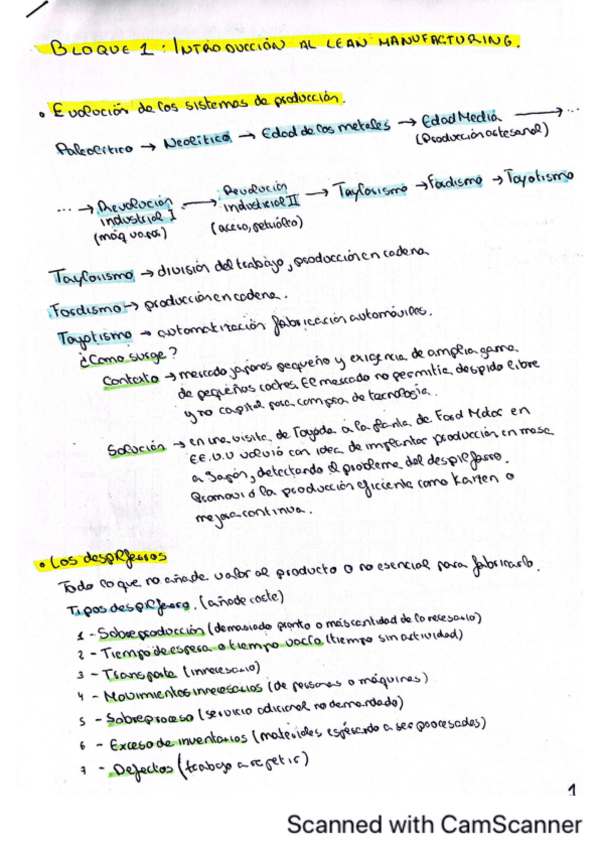 BLOQUE 1: INTRODUCCIÓN AL LEAN MANUFACTURING.
• Evolución de los sistemas de producción.
Paleolítico → Neolítico → Edad de los metales → Edad Media → ...
(Producción artesanal)
... → Revolución industrial I → Revolución industrial II → Taylorismo → Fordismo → Toyotismo
(máq vapor) (acero, petróleo)
Taylorismo → división del trabajo, producción en cadena
Fordismo → producción en cadena.
Toyotismo → automatización fabricación automóviles.
¿Como surge?
Contexto → mercado japones pequeño y exigencia de amplia gama
de pequeños coches. El mercado no permitia despido libre
y no capital para compra de tecnología.
Solución → en una visita de Toyoda a la planta de Ford Motor en
EE.UU volvió con idea de implantar producción en masa
a Japón, detectando el problema del despilfarro.
Promovió la producción eficiente como Kaizen o
mejora continua.
• Los despilfarros
Todo lo que no añade valor al producto o no esencial para fabricarlo.
Tipos despilfarro. (añade coste)
1 - Sobreproducción (demasiado pronto o más cantidad de lo necesario)
2 - Tiempo de espera o tiempo vacío (tiempo sin actividad)
3 - Transporte (innecesario)
4 - Movimientos innecesarios (de personas o máquinas)
5 - Sobreproceso (servicio adicional no demandado)
6 - Exceso de inventarios (materiales esperando a ser procesados)
7 - Defectos (trabajo a repetir)
1
Scanned with CamScanner